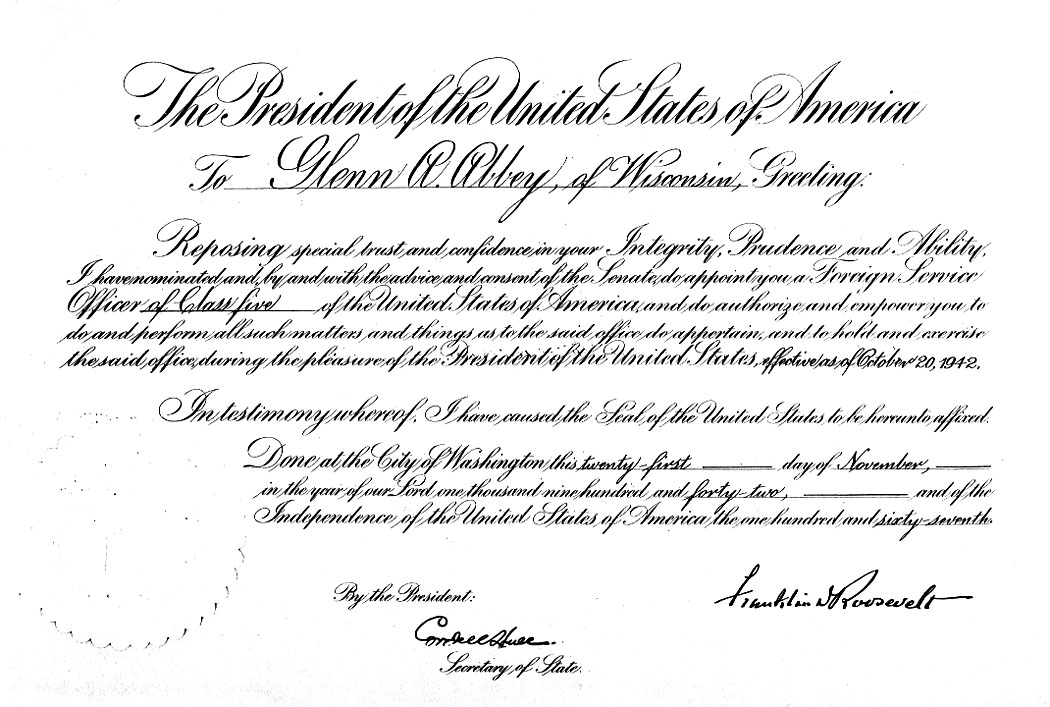 The President of the United States of America
To Glenn A. Abbey, of Wisconsin, Greeting:
Reposing special trust and confidence in your Integrity, Prudence, and Ability,
I have nominated and, by and with the advice and consent of the Senate, do appoint you a Foreign Service
Officer of Class five of the United States of America, and do authorize and empower you to
do and perform all such matters and things as to the said office do appertain, and to hold and exercise
the said office, during the pleasure of the President of the United States, effective as of October 20, 1942.
In testimony whereof, I have caused the Seal of the United States to be hereunto affixed.
Done at the City of Washington this twenty-first day of November,
in the year of our Lord one thousand nine hundred and forty-two, and of the
Independence of the United States of America the one hundred and sixty-seventh.
By the President:
Franklin D Roosevelt
Cordell Hull
Secretary of State.